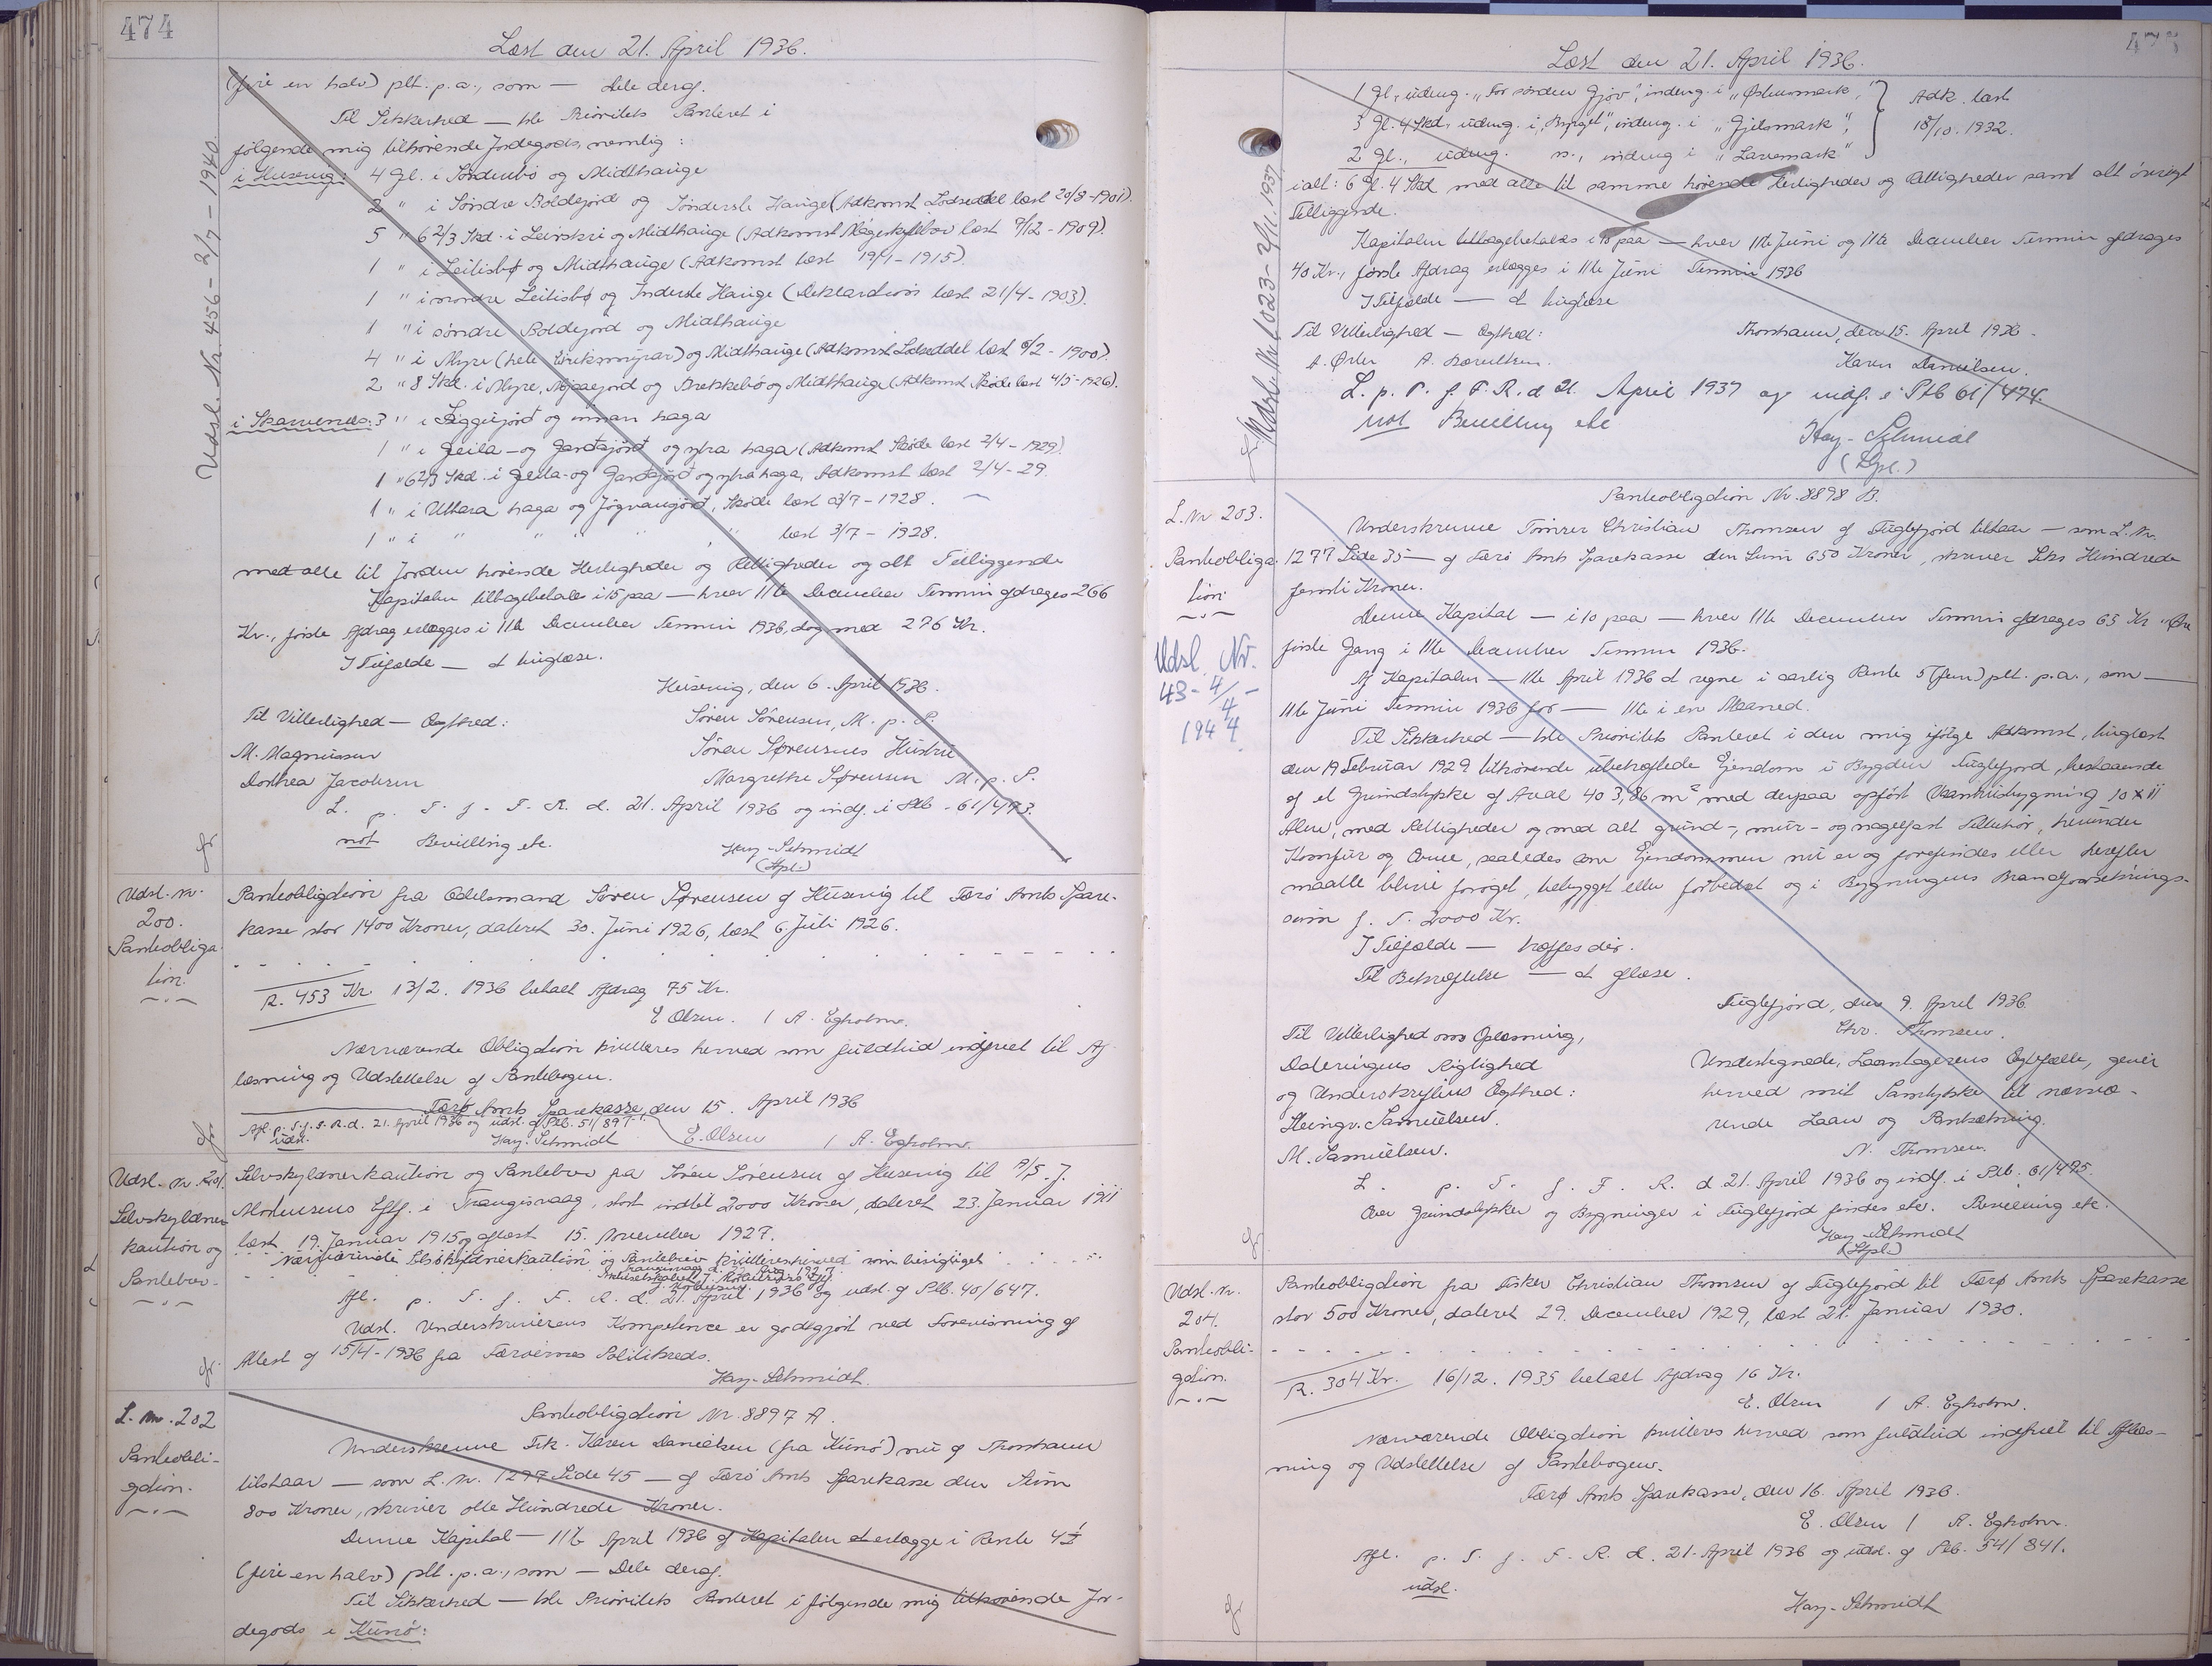 474
Læst den 21. April 1936.
(fire en halv) pCt. p. a., som — dele deraf.
Til Sikkerhed — 1ste Prioritets Panteret i
følgende mig tilhørende Jordegods, nemlig:
i Husevig: 4 Gl. i Sønderbø og Midthauge
2 " i Søndre Boldejord og Sønderste Hauge (Adkomst Lodseddel læst 20/8-1901).
5 " 6 2/3 Skd. i Leirskri og Midthauge (Adkomst Mageskiftebrev læst 9/12 - 1909).
1 " i Leitisbø og Midthauge (Adkomst læst 19/1 - 1915).
1 " i nordre Leitisbø og Inderste Hauge (Deklaration læst 21/4 - 1903).
1 " i søndre Boldejord og Midthauge
4 " i Myre (hele ) og Midthauge (Adkomst Lodseddel læst 6/2 - 1900).
2 " 8 Skd. i Myre, og Brekkebø og Midthauge (Adkomst Skøde læst 4/5 - 1926).
i Skarvenæs: 3 " i og innan haga
1 " i Geila- og Garðsjørð og ytra haga (Adkomst Skøde læst 2/4 - 1929)
1 " 6 2/3 Skd. i Geila- og Garðsjørð og ytra haga, Adkomst læst 2/4 - 29.
1 " i Uttara haga og Jógvansjørð, Skøde læst 3/7 - 1928.
1 " i " " " " " læst 3/7 - 1928.
med alle til Jorden hørende Herligheder og Rettigheder og alt Tilliggende
Kapitalen tilbagebetales i 15 paa — hver 11te December Termin afdrages 266
Kr., første Afdrag erlægges i 11te December Termin 1936, dog med 276 Kr.
I Tilfælde — at tinglæse.
Husevig, den 6. April 1936.
Til Vitterlighed — Ægthed:
Søren Sørensen, M. p. P.
M. Magnussen
Søren Sørensens Hustru
Dorthea Jacobsen
Margrethe Sørensen M. p. P.
L. p. T. f. F. R. d. 21. April 1936 og indf. i Ptb. 61/473.
not Bevilling etc.
Hay-Schmidt
(Stpl.)
Udsl. Nr. 456 - 2/7 - 1940.
Udsl. Nr. 200. Panteobligation.
Panteobligation fra Odelsmand Søren Sørensen af Husevig til Færø Amts Spare-
kasse stor 1400 Kroner, dateret 30. Juni 1926, læst 6. Juli 1926.
R. 453 Kr. 13/2. 1936 betalt Afdrag 75 Kr.
E Olsen. / A. Egholm.
Nærværende Obligation kvitteres herved som fuldtud indfriet til Af-
læsning og Udslettelse af Pantebogen.
Færø Amts Sparekasse, den 15. April 1936
Afl. p. T. f. F. R. d. 21. April 1936 og udsl. af Ptb. 51/897.
udsl. Hay-Schmidt
E. Olsen / A. Egholm.
Udsl. Nr. 201. Selvskyldnerkaution og Pantebrev.
Selvskyldnerkaution og Pantebrev fra Søren Sørensen af Husevig til A/S. J.
Mortensens Eftf. i Trangisvaag, stort indtil 2000 Kroner, dateret 23. Januar 1911
læst 19. Januar 1915 og aflæst 15. November 1927.
Nærværende Selvskyldnerkaution og Pantebrev kvitteres herved som berigtiget
Afl. p. T. f. F. R. d. 21. April 1936 og udsl. af Ptb. 40/647.
Udsl. Underskriverens Kompetence er godtgjort ved Forevisning af
Attest af 15/4 - 1936 fra Færøernes Politikreds.
Hay-Schmidt.
L. Nr. 202 Panteobligation.
Panteobligation Nr. 8897 A.
Underskrevne Frk. Karen Danielsen (fra Kunø) nu af Thorshavn
tilstaar — som L. Nr. 1277 Side 45 — af Færø Amts Sparekasse den Sum
800 Kroner, skriver otte Hundrede Kroner.
Denne Kapital — 11te April 1936 af Kapitalen at erlægge i Rente 4½
(fire en halv) pCt. p. a., som — Dele deraf.
Til Sikkerhed — 1ste Prioritets Panteret i følgende mig tilhørende Jor-
degods i Kunø:
475
Læst den 21. April 1936.
1 Gl., udeng. "For sønden Gjov", indeng. i "Østurmark,"
3 Gl. 4 Skd, udeng. i, indeng. i "Gjelsmark",
2 Gl., udeng. "., indeng i "Lavemark"
Adk. læst
18/10. 1932.
ialt: 6 Gl. 4 Skd med alle til samme hørende Herligheder og Rettigheder samt alt øvrigt
Tilliggende.
Kapitalen tilbagebetales i 10 paa — hver 11te Juni og 11te December Termin afdrages
40 Kr., første Afdrag erlægges i 11te Juni Termin 1936
I Tilfælde — at tinglæse
Til Vitterlighed — Ægthed:
Thorshavn, den 15. April 1936.
A. Berentsen.
Karen Danielsen.
L. p. T. f. F. R. d 21. April 1937 og indf. i Ptb 61/474.
not Bevilling etc
Hay-Schmidt
(Stpl.)
Udsl. Nr. 1023 - 2/11. 1937.
L. Nr 203. Panteobligation.
Udsl. Nr. 43 - 4/4 - 1944.
Panteobligation Nr. 8898 B.
Underskrevne Tømrer Christian Thomsen af Fuglefjord tilstaar — som L. Nr.
1277 Side 35 — af Færø Amts Sparekasse den Sum 650 Kroner, skriver Seks Hundrede
femti Kroner.
Denne Kapital — i 10 paa — hver 11te December Termin afdrages 65 Kr " Øre
første Gang i 11te December Termin 1936.
Af Kapitalen — 11te April 1936 at regne i aarlig Rente 5 (fem) pCt. p.a., som —
11te Juni Termin 1936 for — 11te i en Maaned.
Til Sikkerhed — 1ste Prioritets Panteret i den mig ifølge Adkomst, tinglæst
den 19 Februar 1929 tilhørende ubehæftede Ejendom i Bygden Fuglefjord, bestaaende
af et Grundstykke af Areal 403,86 m² med derpaa opført Vaaningsbygning 10 x 11
Alen, med Rettigheder og med alt grund-, mur- og nagelfast Tilbehør, herunder
Komfur og Ovne, saaledes som Ejendommen nu er og forefindes eller herefter
maatte blive forøget, bebygget eller forbedret og i Bygningens Brandforsikrings-
sum f. T. 2000 Kr.
I Tilfælde — træffes der.
Til Bekræftelse — at aflæse.
Fuglefjord, den 9. April 1936.
Chr. Thomsen.
Til Vitterlighed om Oplæsning,
Dateringens Rigtighed
og Underskriftens Ægthed:
Heingr. Samuelsen.
M. Samuelsen.
Undertegnede, Laantagerens Ægtefælle, giver
herved mit Samtykke til nærvæ-
rende Laan og Pantsætning.
N. Thomsen.
L. p. T. f. F. R. d 21. April 1936 og indf. i Ptb. 61/475.
Over Grundstykker og Bygninger i Fuglefjord findes etc. Bevilling etc.
Hay-Schmidt
(Stpl.)
Udsl. Nr. 204. Panteobligation.
Panteobligation fra Fisker Christian Thomsen af Fuglefjord til Færø Amts Sparekasse
stor 500 Kroner, dateret 29. December 1929, læst 21. Januar 1930.
R. 304 Kr. 16/12. 1935 betalt Afdrag 16 Kr.
E. Olsen / A. Egholm.
Nærværende Obligation kvitteres herved som fuldtud indfriet til Aflæs-
ning og Udslettelse af Pantebogen.
Færø Amts Sparekasse, den 16. April 1936.
E. Olsen / A. Egholm.
Afl. p. T. f. F. R. d. 21. April 1936 og udsl. af Ptb. 54/841.
udsl.
Hay-Schmidt